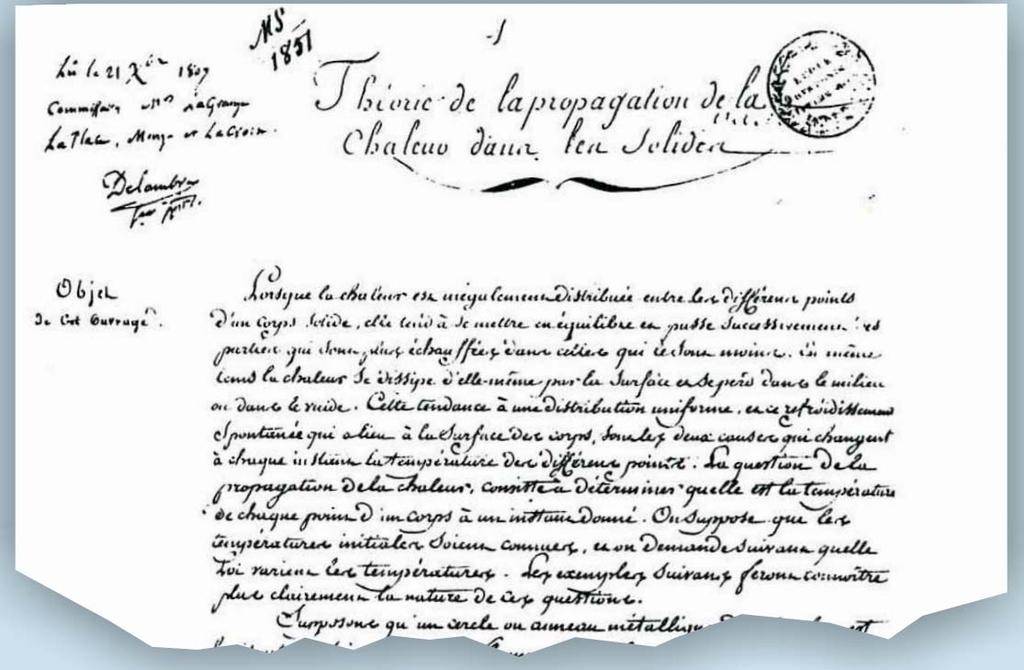 MS
1851
1
Lû le 21 Xbre 1807
Commissaires Mrs LaGrange
LaPlace, Monge et LaCroix.
Delambre
Théorie de la propagation de la
Chaleur dans les Solides
Objet
de Cet Ouvrage.
Lorsque la chaleur est inégalement distribuée entre les différens points
d'un corps solide, elle tend à se mettre en équilibre et passe successivement des
parties qui sont plus échauffées dans celles qui le sont moins. En même
tems la chaleur se dissipe d'elle-même par la surface et se perd dans le milieu
ou dans le vuide. Cette tendance à une distribution uniforme, et ce refroidissement
spontanée qui a lieu à la surface des corps, sont les deux causes qui changent
à chaque instant la température des différens points. La question de la
propagation de la chaleur, consiste à déterminer quelle est la température
de chaque point d'un corps à un instant donné. On suppose que les
températures initiales soient connues, et on demande suivant quelle
Loi varient les températures. Les exemples suivans feront connoître
plus clairement la nature de ces questions.
Supposons qu'un cercle ou anneau métallique est